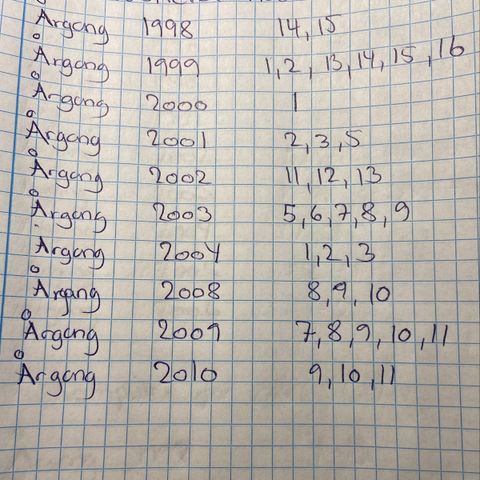 Årgang 1998 14, 15
Årgang 1999 1, 2, 13, 14, 15, 16
Årgang 2000 1
Årgang 2001 2, 3, 5
Årgang 2002 11, 12, 13
Årgang 2003 5, 6, 7, 8, 9
Årgang 2004 1, 2, 3
Årgang 2008 8, 9, 10
Årgang 2009 7, 8, 9, 10, 11
Årgang 2010 9, 10, 11